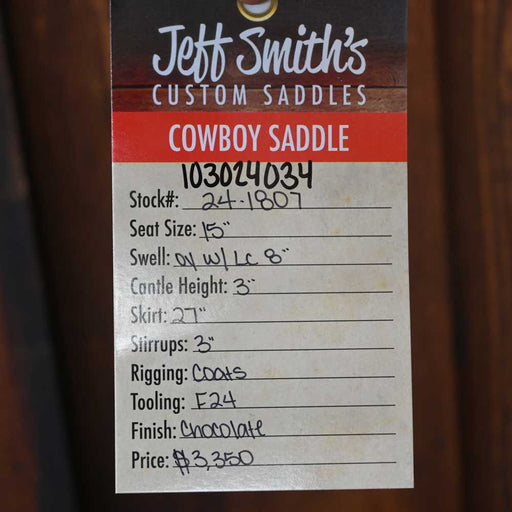 Jeff Smith's
CUSTOM SADDLES
COWBOY SADDLE
103024034
Stock#: 24-1807
Seat Size: 15"
Swell: w/ LC 8"
Cantle Height: 3"
Skirt: 27"
Stirrups: 3"
Rigging: Coats
Tooling: F24
Finish: Chocolate
Price: $3,350